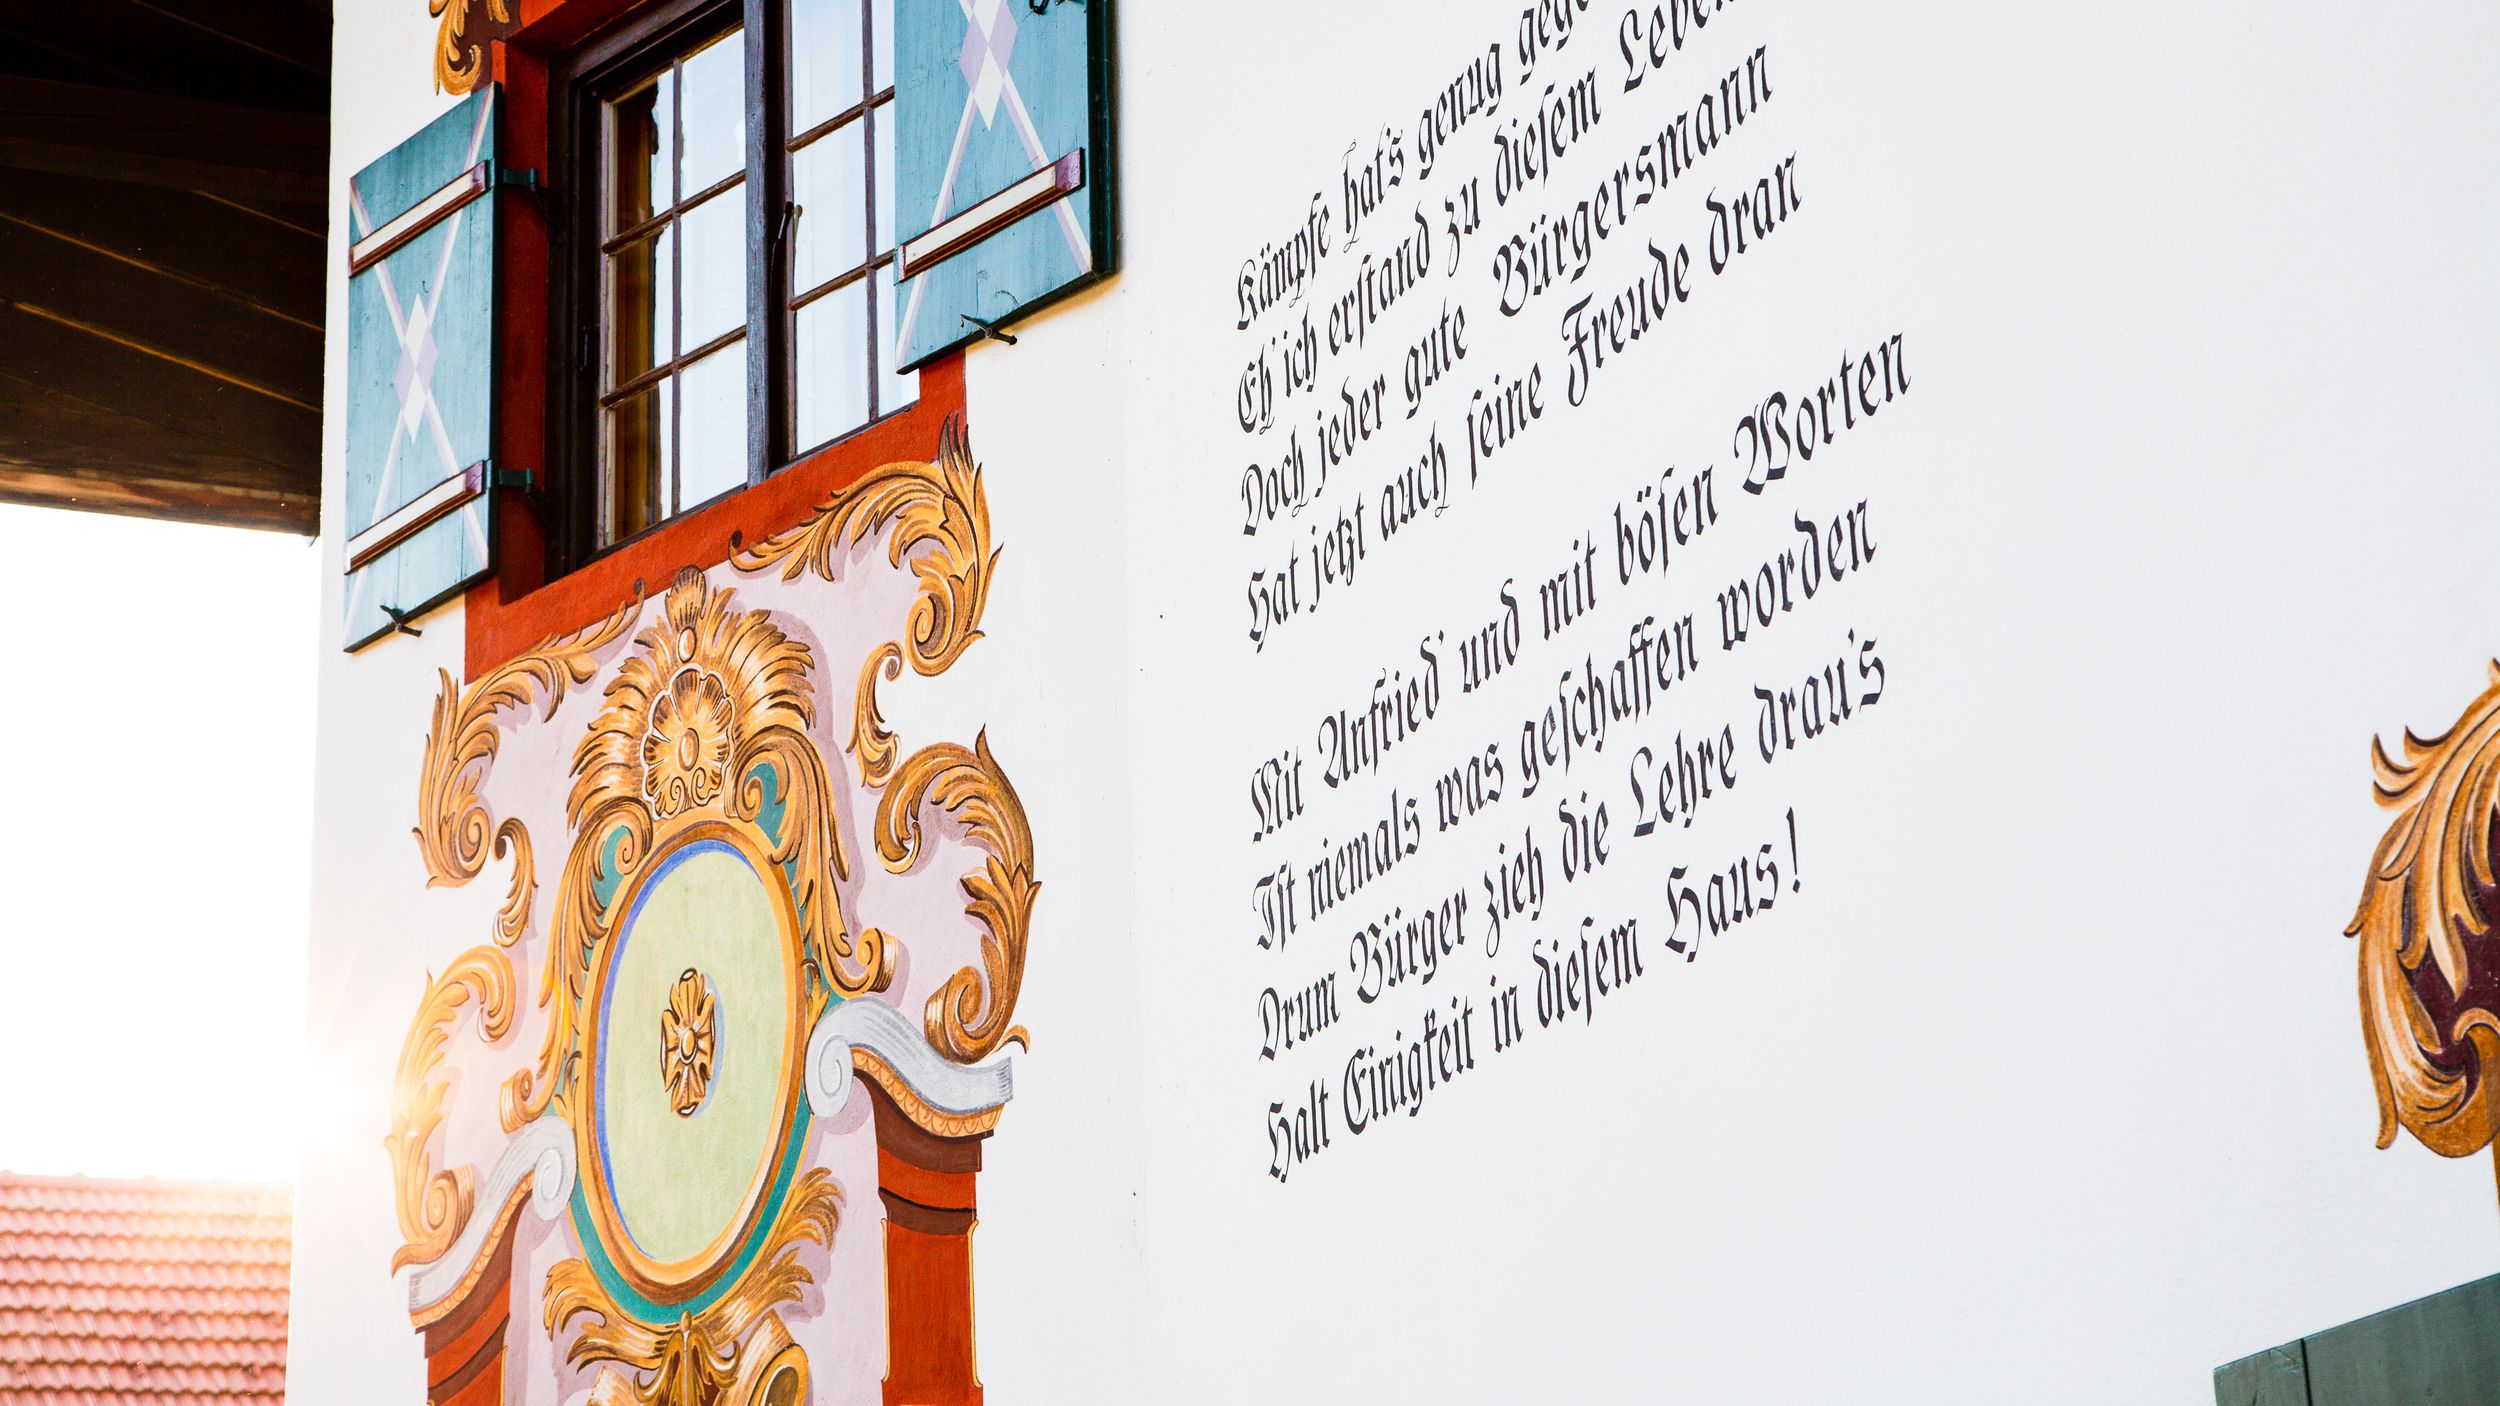 Kämpfe hat's genug
Eh' ich erstand zu diesem Leben
Doch jeder gute Bürgersmann
Hat jetzt auch seine Freude dran
Mit Unfried' und mit bösen Worten
Ist niemals was geschaffen worden
Drum Bürger zieh die Lehre drau's
Halt Einigkeit in diesem Haus!